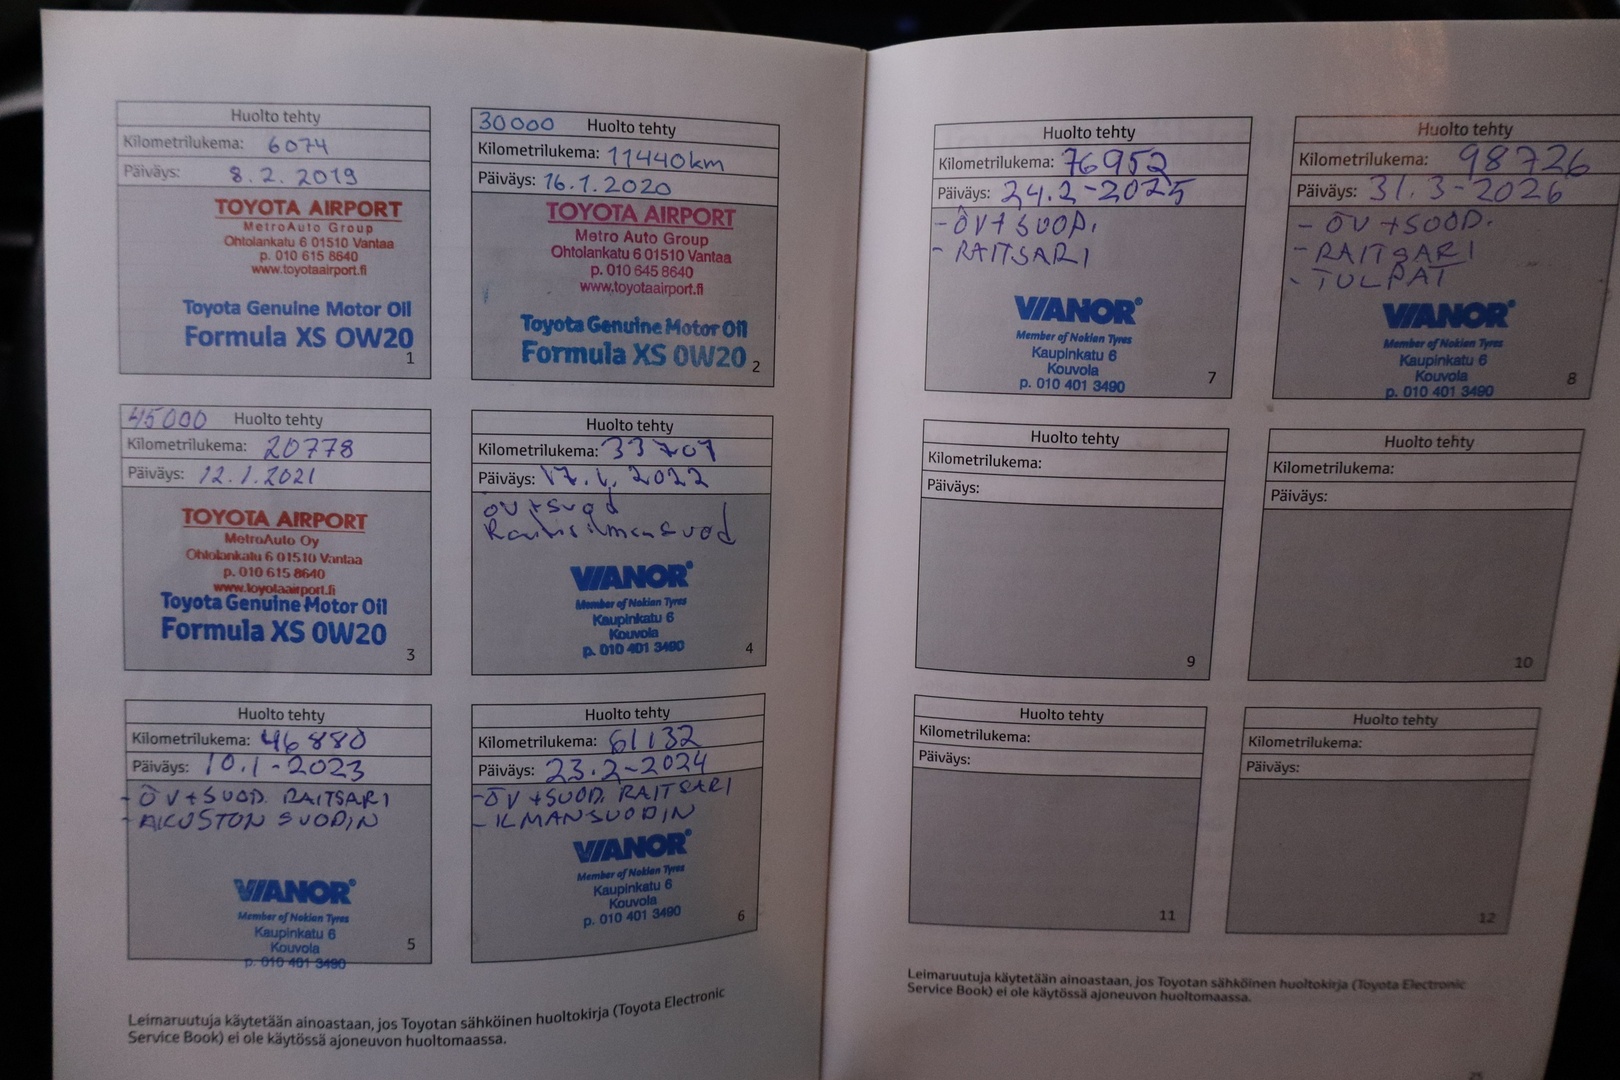 Huolto tehty
Kilometrilukema: 6074
Päiväys: 8.2.2019
TOYOTA AIRPORT
MetroAuto Group
Ohtolankatu 6 01510 Vantaa
p. 010 615 8640
www.toyotaairport.fi
Toyota Genuine Motor Oil
Formula XS 0W20
1
30000 Huolto tehty
Kilometrilukema: 11440km
Päiväys: 16.1.2020
TOYOTA AIRPORT
Metro Auto Group
Ohtolankatu 6 01510 Vantaa
p. 010 645 8640
www.toyotaairport.fi
Toyota Genuine Motor Oil
Formula XS 0W20
2
45000 Huolto tehty
Kilometrilukema: 20778
Päiväys: 12.1.2021
TOYOTA AIRPORT
MetroAuto Oy
Ohtolankatu 6 01510 Vantaa
p. 010 615 8640
www.toyotaairport.fi
Toyota Genuine Motor Oil
Formula XS 0W20
3
Huolto tehty
Kilometrilukema: 33707
Päiväys: 17.1.2022
öv+suod
Raitisilmansuod
VIANOR®
Member of Nokian Tyres
Kaupinkatu 6
Kouvola
p. 010 401 3490
4
Huolto tehty
Kilometrilukema: 46880
Päiväys: 10.1-2023
- ÖV+SUOD. RAITSARI
- AKUSTON SUODIN
VIANOR®
Member of Nokian Tyres
Kaupinkatu 6
Kouvola
p. 010 401 3490
5
Huolto tehty
Kilometrilukema: 61132
Päiväys: 23.2-2024
- ÖV+SUOD. RAITSARI
- ILMANSUODIN
VIANOR®
Member of Nokian Tyres
Kaupinkatu 6
Kouvola
p. 010 401 3490
6
Leimaruutuja käytetään ainoastaan, jos Toyotan sähköinen huoltokirja (Toyota Electronic
Service Book) ei ole käytössä ajoneuvon huoltomaassa.
Huolto tehty
Kilometrilukema: 76952
Päiväys: 24.2-2025
- ÖV+SUOD.
- RAITSARI
VIANOR®
Member of Nokian Tyres
Kaupinkatu 6
Kouvola
p. 010 401 3490
7
Huolto tehty
Kilometrilukema: 98726
Päiväys: 31.3-2026
- ÖV+SUOD.
- RAITSARI
- TULPAT
VIANOR®
Member of Nokian Tyres
Kaupinkatu 6
Kouvola
p. 010 401 3490
8
Huolto tehty
Kilometrilukema:
Päiväys:
9
Huolto tehty
Kilometrilukema:
Päiväys:
10
Huolto tehty
Kilometrilukema:
Päiväys:
11
Huolto tehty
Kilometrilukema:
Päiväys:
12
Leimaruutuja käytetään ainoastaan, jos Toyotan sähköinen huoltokirja (Toyota Electronic
Service Book) ei ole käytössä ajoneuvon huoltomaassa.